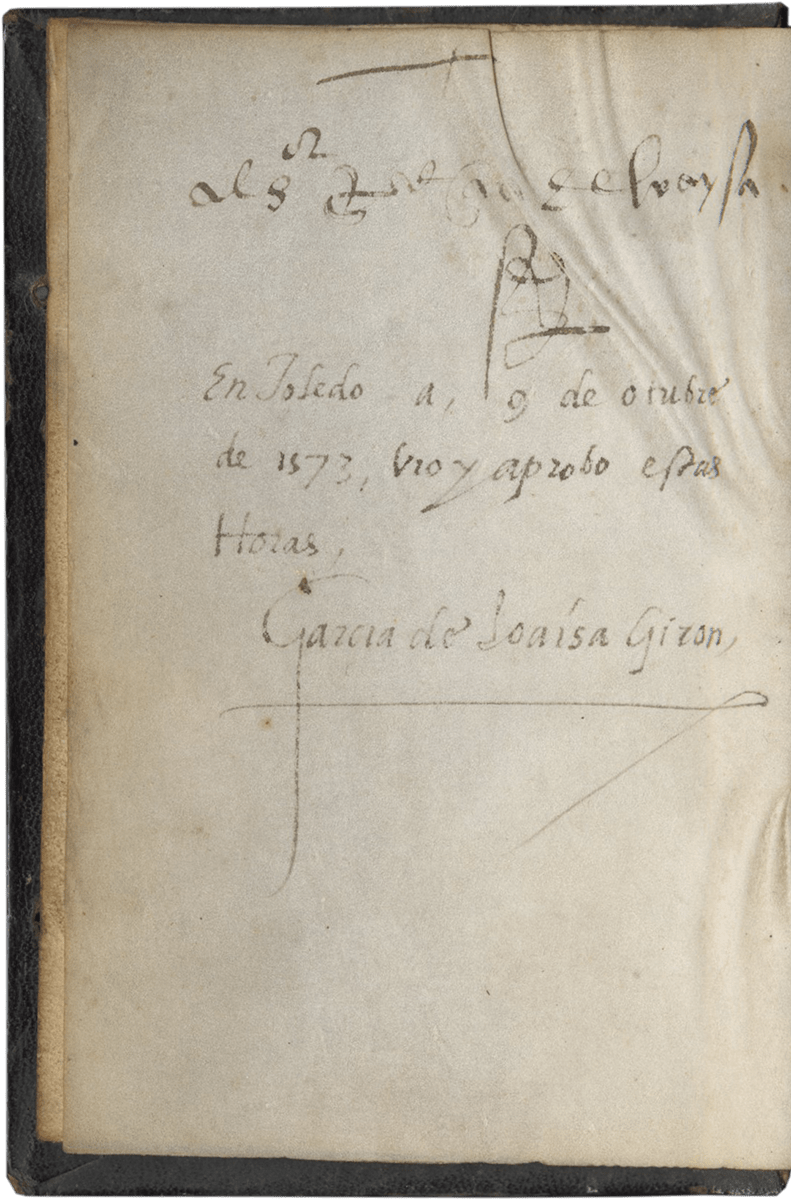 al s.or
de loaysa
En Toledo a, 9 de otubre
de 1573, vio y aprobo estas
Horas,
Garcia de Loaisa Giron,